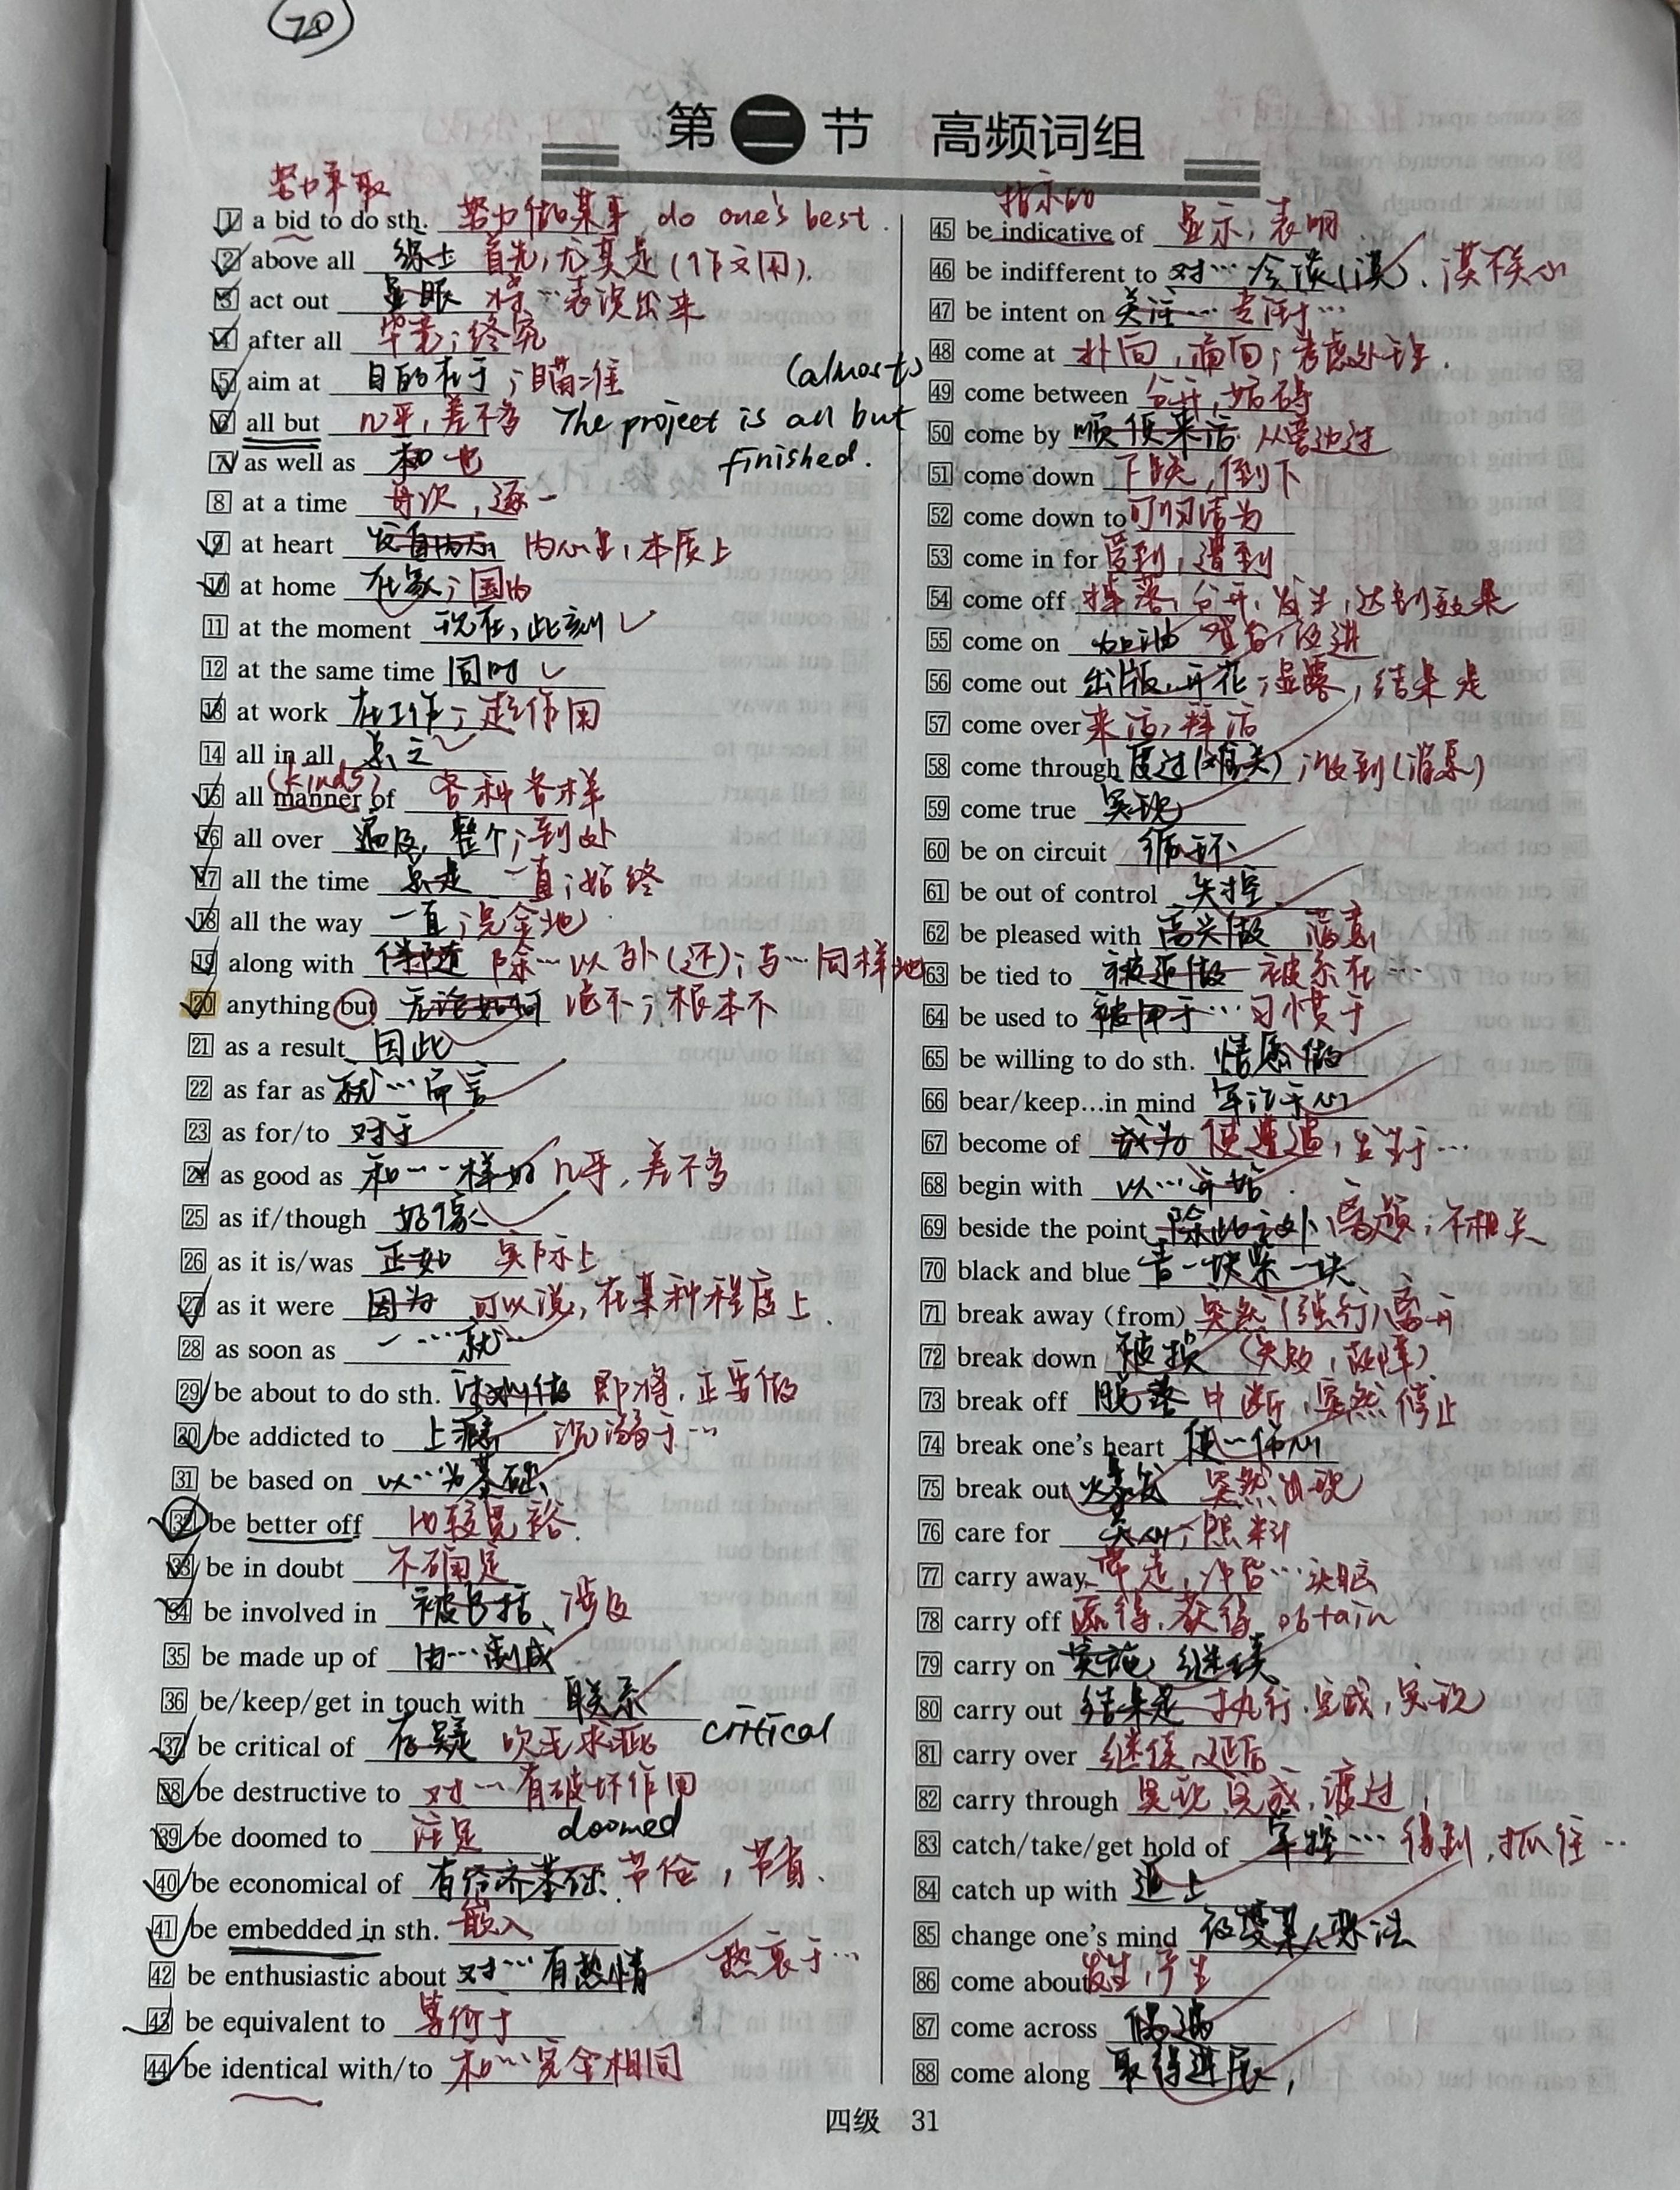 20
第二节 高频词组
努力争取
1 a bid to do sth. 努力做某事 do one's best.
2 above all 综上 首先;尤其是(作文用).
3 act out 显眼 将…表演出来
4 after all 毕竟;终究
5 aim at 目的在于;瞄准
(almost)
6 all but 几乎,差不多 The project is all but
finished.
7 as well as 和 也
8 at a time 每次,逐一
9 at heart 发自内心 内心里,本质上
10 at home 在家;国内
11 at the moment 现在,此刻
12 at the same time 同时
13 at work 在工作;起作用
14 all in all 总之
(kinds)
15 all manner of 各种各样
16 all over 遍及,整个;到处
17 all the time 总是 一直;始终
18 all the way 一直;完全地
19 along with 伴随 除…以外(还);与…同样地
20 anything but 无论如何 绝不;根本不
21 as a result 因此
22 as far as 就…而言
23 as for/to 对于
24 as good as 和…一样好 几乎,差不多
25 as if/though 好像
26 as it is/was 正如 实际上
27 as it were 因为 可以说,在某种程度上.
28 as soon as 一…就
29 be about to do sth. 计划做 即将,正要做
30 be addicted to 上瘾 沉溺于…
31 be based on 以…为基础
32 be better off 比较宽裕.
33 be in doubt 不确定
34 be involved in 被包括、涉及
35 be made up of 由…制成
36 be/keep/get in touch with 联系
critical
37 be critical of 存疑 吹毛求疵
38 be destructive to 对…有破坏作用
39 be doomed to 注定 doomed
40 be economical of 有经济基础. 节俭,节省.
41 be embedded in sth. 嵌入
42 be enthusiastic about 对…有热情 热衷于…
43 be equivalent to 等价于
44 be identical with/to 和…完全相同
指示的
45 be indicative of 显示;表明
46 be indifferent to 对…冷淡(漠)、漠不关心
47 be intent on 关注… 专注于…
48 come at 扑向,涌向;考虑处理.
49 come between 分开,妨碍
50 come by 顺便来访 从旁边过
51 come down 下跌,倒下
52 come down to 可归结为
53 come in for 受到,遭到
54 come off 掉落,分开,发生,达到效果
55 come on 加油
56 come out 出版,开花;显露,结果是
57 come over 来访,拜访
58 come through 度过(难关);收到(消息)
59 come true 实现
60 be on circuit 循环
61 be out of control 失控
62 be pleased with 高兴做 满意
63 be tied to 被迫做 被系在…
64 be used to 被用于… 习惯于
65 be willing to do sth. 情愿做
66 bear/keep...in mind 牢记于心
67 become of 成为 使遭遇,发生于…
68 begin with 以…开始.
69 beside the point 除此之外 离题;不相关
70 black and blue 青一块紫一块
71 break away (from) 突然(强行)离开
72 break down 被损 (失败,故障)
73 break off 脱落 中断,突然停止
74 break one's heart 使…伤心
75 break out 爆发 突然出现
76 care for 关心;照料
77 carry away 带走,冲昏…头脑
78 carry off 赢得,获得 obtain
79 carry on 实施、继续
80 carry out 结果是 执行,完成,实现
81 carry over 继续,延后
82 carry through 实现,完成,渡过
83 catch/take/get hold of 掌控… 得到,抓住…
84 catch up with 追上
85 change one's mind 改变某人想法
86 come about 发生,产生
87 come across 偶遇
88 come along 取得进展,
四级 31